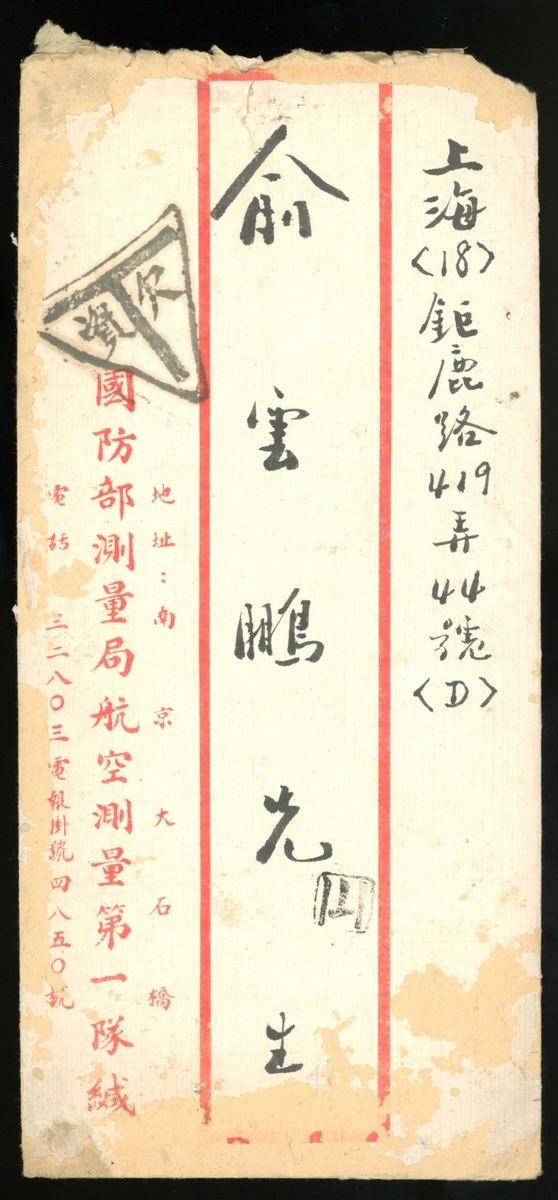 上海〈18〉鉅鹿路419弄44號〈D〉
俞雲鵬先生
地址：南京大石橋
國防部測量局航空測量第一隊緘
電話 三二八〇三電報掛號四八五〇號
欠資